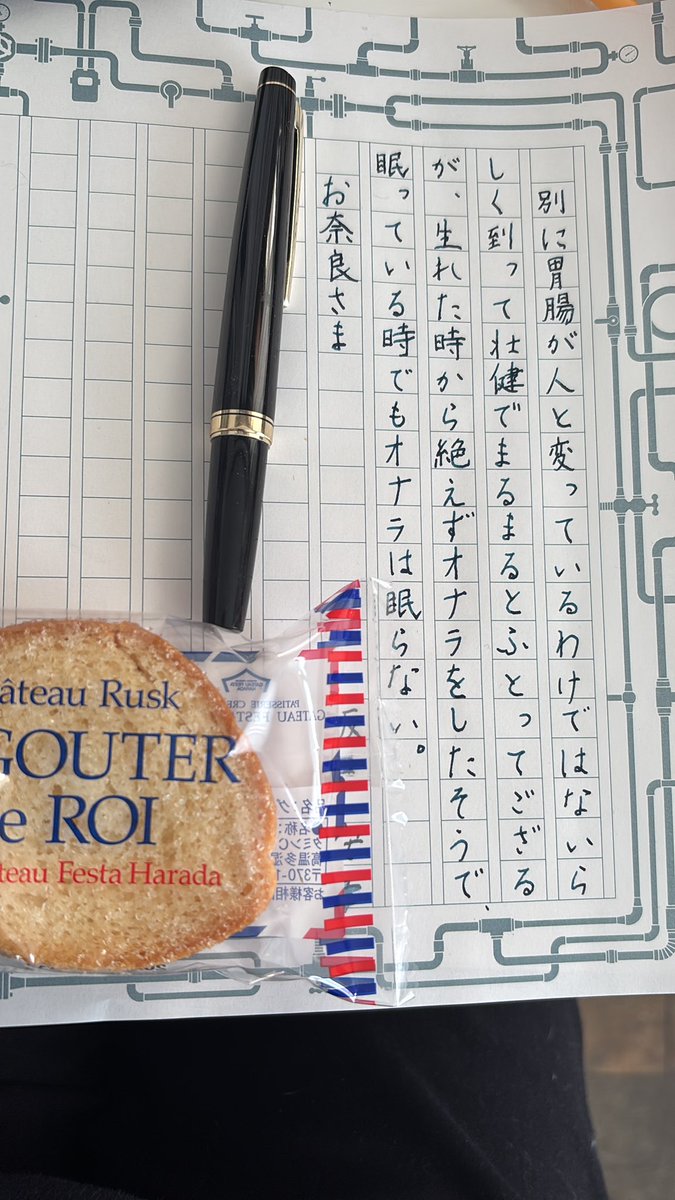 別に胃腸が人と変っているわけではないら
しく到って壮健でまるまるとふとってござる
が、生れた時から絶えずオナラをしたそうで、
眠っている時でもオナラは眠らない。
お奈良さま
âteau Rusk
GOUTER
e ROI
teau Festa Harada
PATISSERIE
高温多湿
〒370-1
お客様相